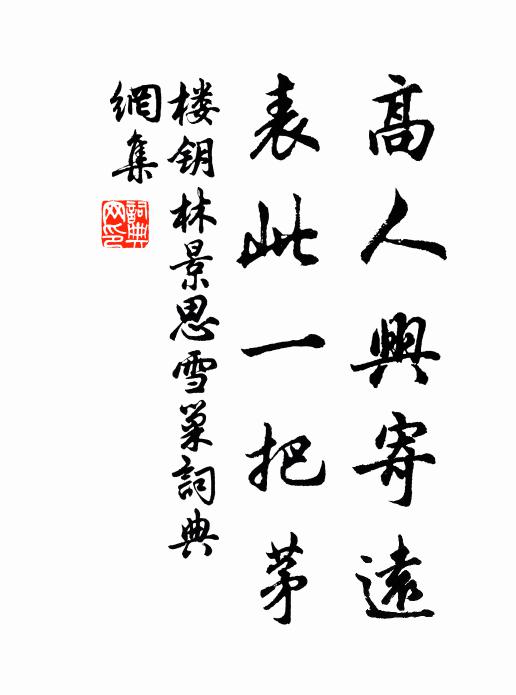 高人興寄遠
表此一把茅
楼钥林景思雪巢詞典
網集
詞典
网印